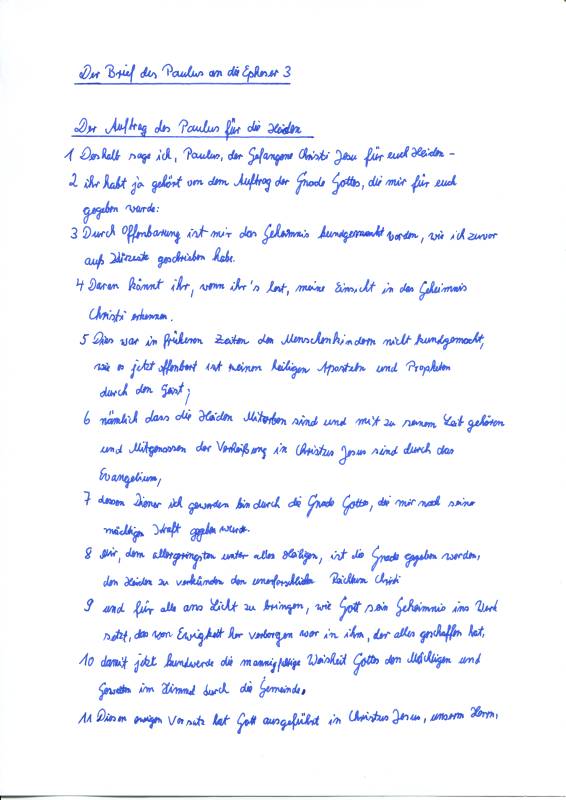 Der Brief des Paulus an die Epheser 3
Der Auftrag des Paulus für die Heiden
1 Deshalb sage ich, Paulus, der Gefangene Christi Jesu für euch Heiden –
2 ihr habt ja gehört von dem Auftrag der Gnade Gottes, die mir für euch
gegeben wurde:
3 Durch Offenbarung ist mir das Geheimnis kundgemacht worden, wie ich zuvor
aufs Kürzeste geschrieben habe.
4 Daran könnt ihr, wenn ihr's lest, meine Einsicht in das Geheimnis
Christi erkennen.
5 Dies war in früheren Zeiten den Menschenkindern nicht kundgemacht,
wie es jetzt offenbart ist seinen heiligen Aposteln und Propheten
durch den Geist;
6 nämlich dass die Heiden Miterben sind und mit zu seinem Leib gehören
und Mitgenossen der Verheißung in Christus Jesus sind durch das
Evangelium,
7 dessen Diener ich geworden bin durch die Gnade Gottes, die mir nach seiner
mächtigen Kraft gegeben wurde.
8 Mir, dem allergeringsten unter allen Heiligen, ist die Gnade gegeben worden,
den Heiden zu verkünden den unerforschlichen Reichtum Christi
9 und für alle ans Licht zu bringen, wie Gott sein Geheimnis ins Werk
setzt, das von Ewigkeit her verborgen war in ihm, der alles geschaffen hat,
10 damit jetzt kundwerde die mannigfaltige Weisheit Gottes den Mächtigen und
Gewalten im Himmel durch die Gemeinde.
11 Diesen ewigen Vorsatz hat Gott ausgeführt in Christus Jesus, unserm Herrn,